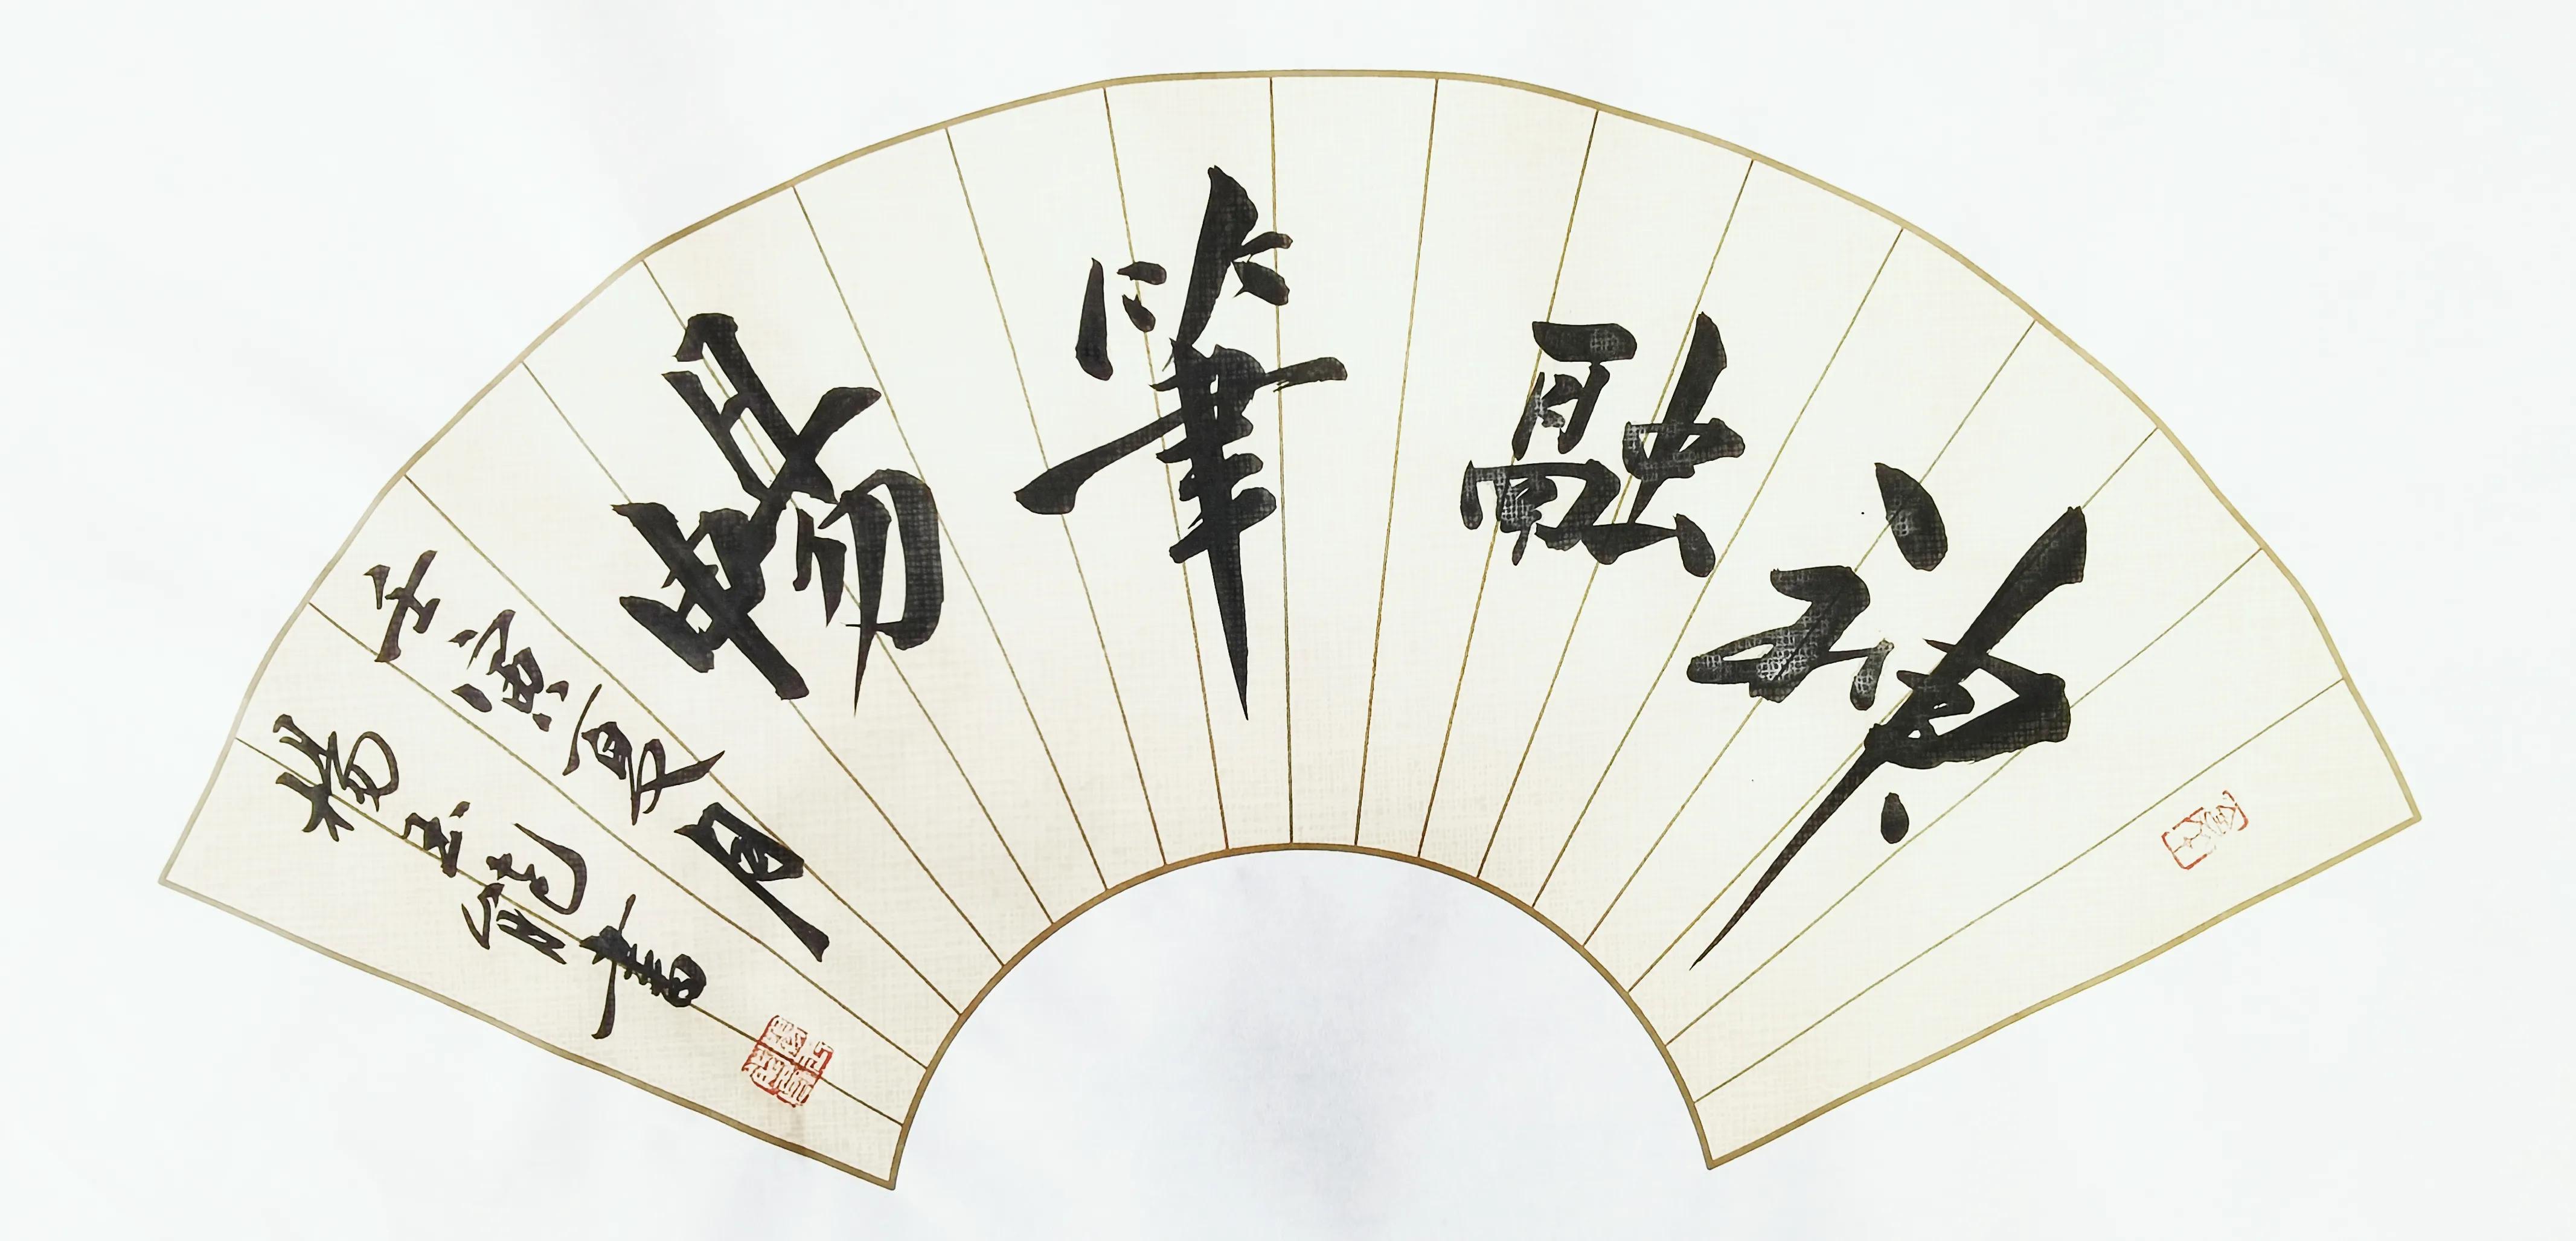 神融筆暢
壬寅夏月
楊玉龍書